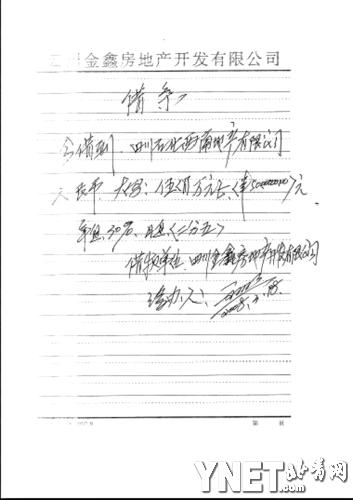 金鑫房地产开发有限公司
借条
今借到 四川石化西南地产有限公司
人民币 大写: 伍仟万元 (¥50000000) 元
年息30% 月息(二分五)
借款单位 四川金鑫房地产开发有限公司
经办人:
第 页
YNET 北青网
.com